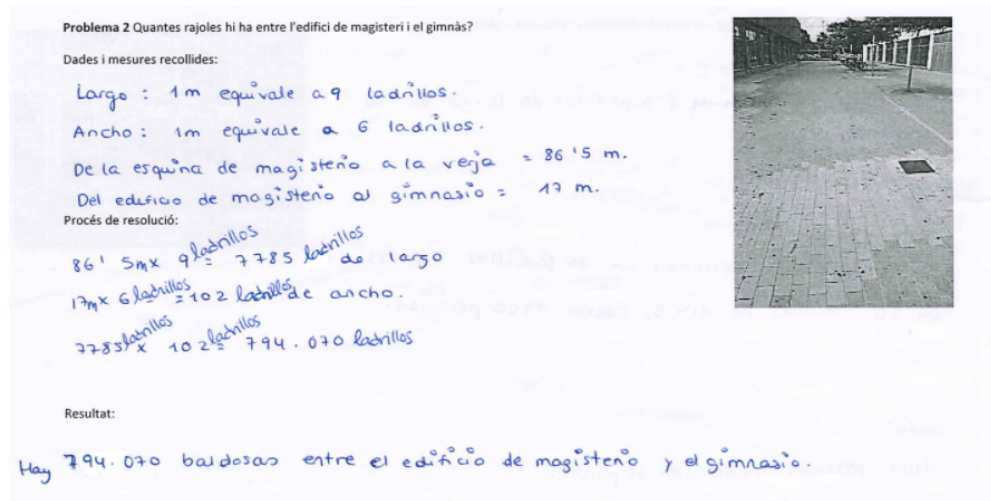 Problema 2 Quantes rajoles hi ha entre l'edifici de magisteri i el gimnàs?
Dades i mesures recollides:
Largo : 1m equivale a 9 ladrillos.
Ancho : 1m equivale a 6 ladrillos.
De la esquina de magisterio a la verja = 86'5 m.
Del edificio de magisterio al gimnasio = 17 m.
Procés de resolució:
86'5m x 9 ladrillos = 7785 ladrillos de largo
17m x 6 ladrillos = 102 ladrillos de ancho.
7785 ladrillos x 102 ladrillos = 794.070 ladrillos
Resultat:
Hay 794.070 baldosas entre el edificio de magisterio y el gimnasio.